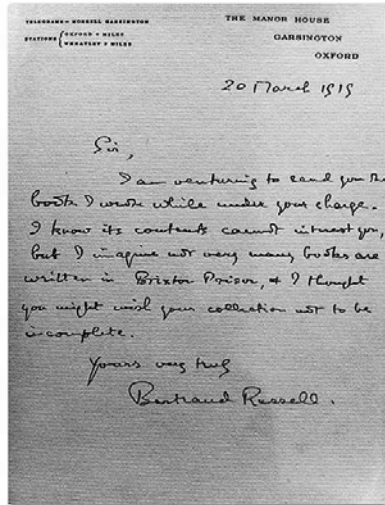 TELEGRAMS - MORRELL GARSINGTON
STATIONS { OXFORD 5 MILES
WHEATLEY 3 MILES
THE MANOR HOUSE
GARSINGTON
OXFORD
20 March 1919
Sir,
I am venturing to send you the
book I wrote while under your charge.
I know its contents cannot interest you,
but I imagine not very many books are
written in Brixton Prison, & I thought
you might wish your collection not to be
incomplete.
Yours very truly
Bertrand Russell.